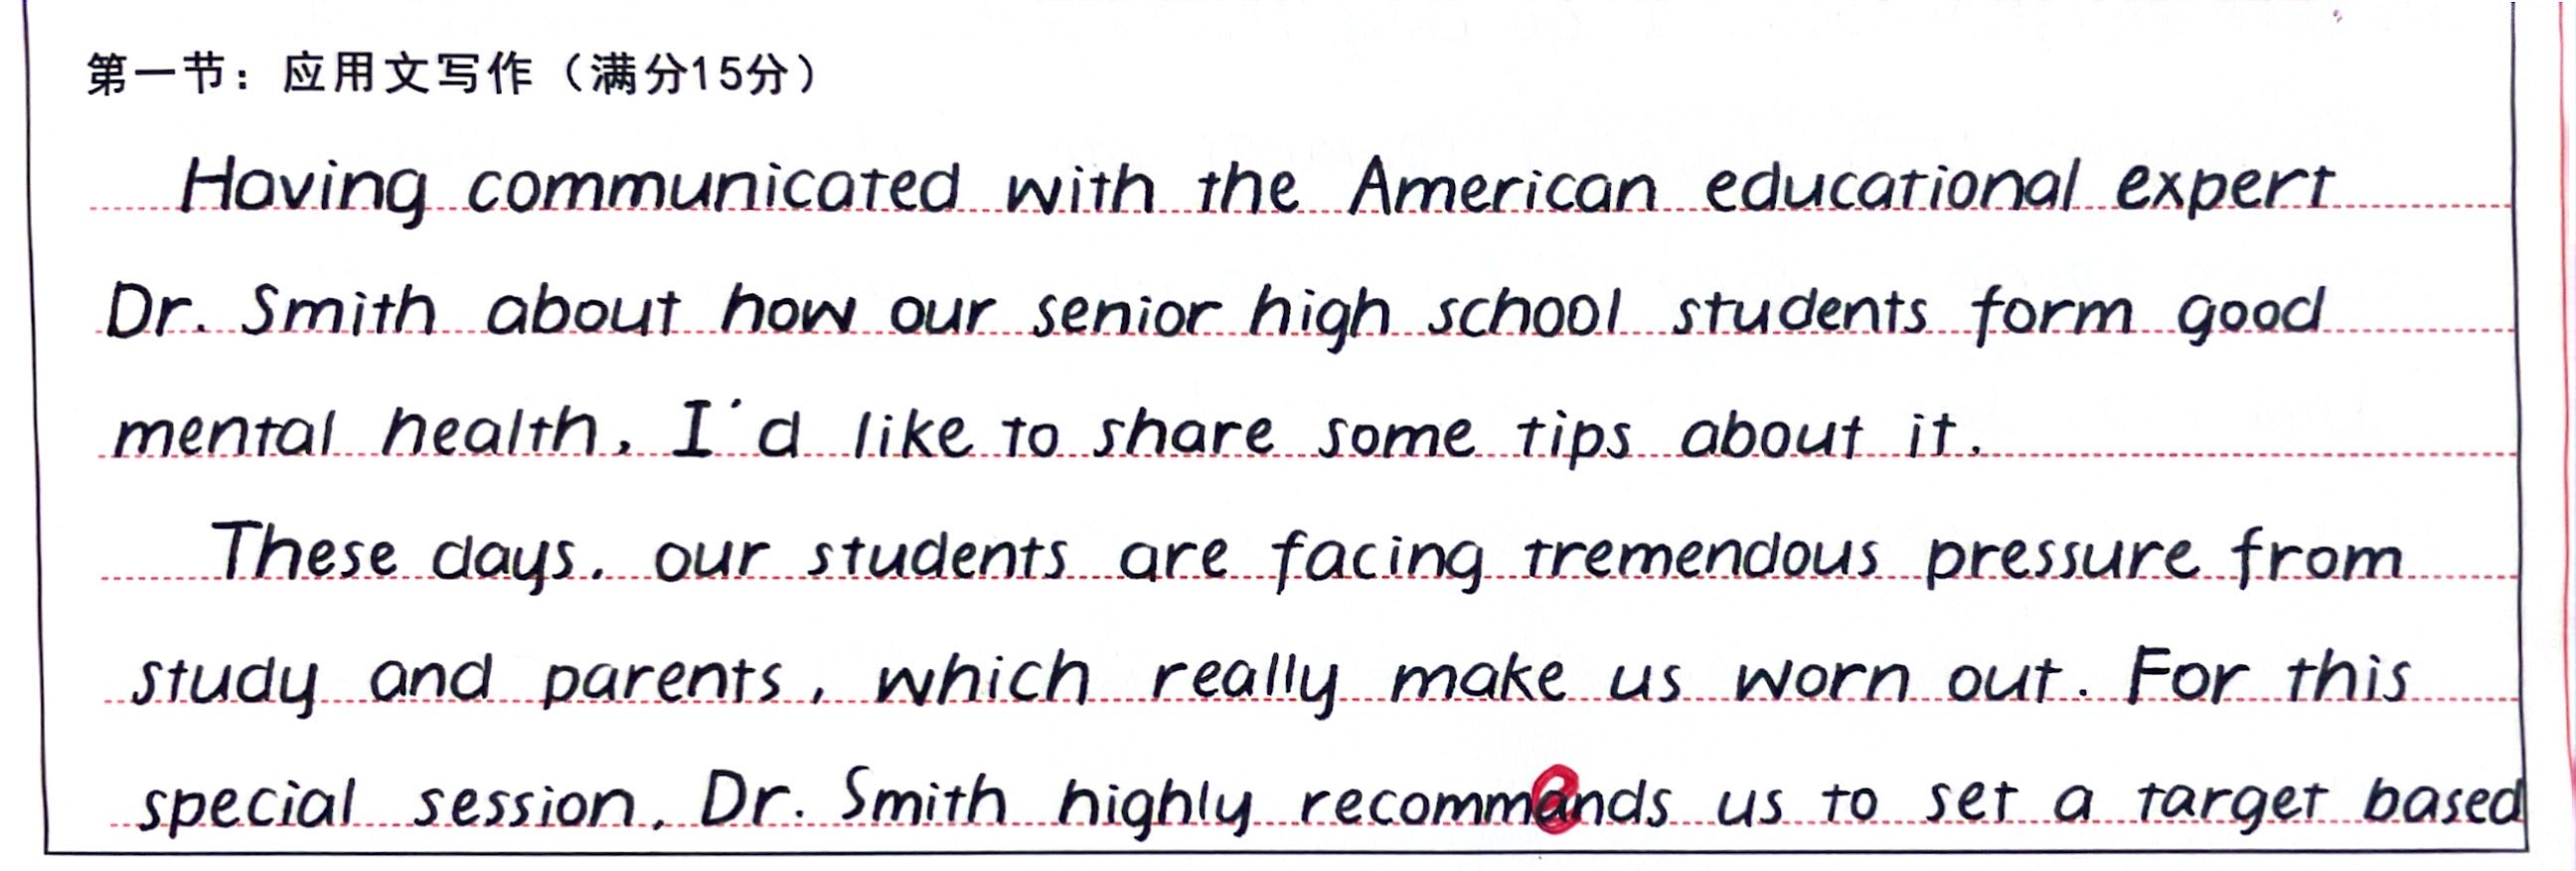 第一节：应用文写作（满分15分）
Having communicated with the American educational expert
Dr. Smith about how our senior high school students form good
mental health, I'd like to share some tips about it.
These days, our students are facing tremendous pressure from
study and parents, which really make us worn out. For this
special session, Dr. Smith highly recommands us to set a target based